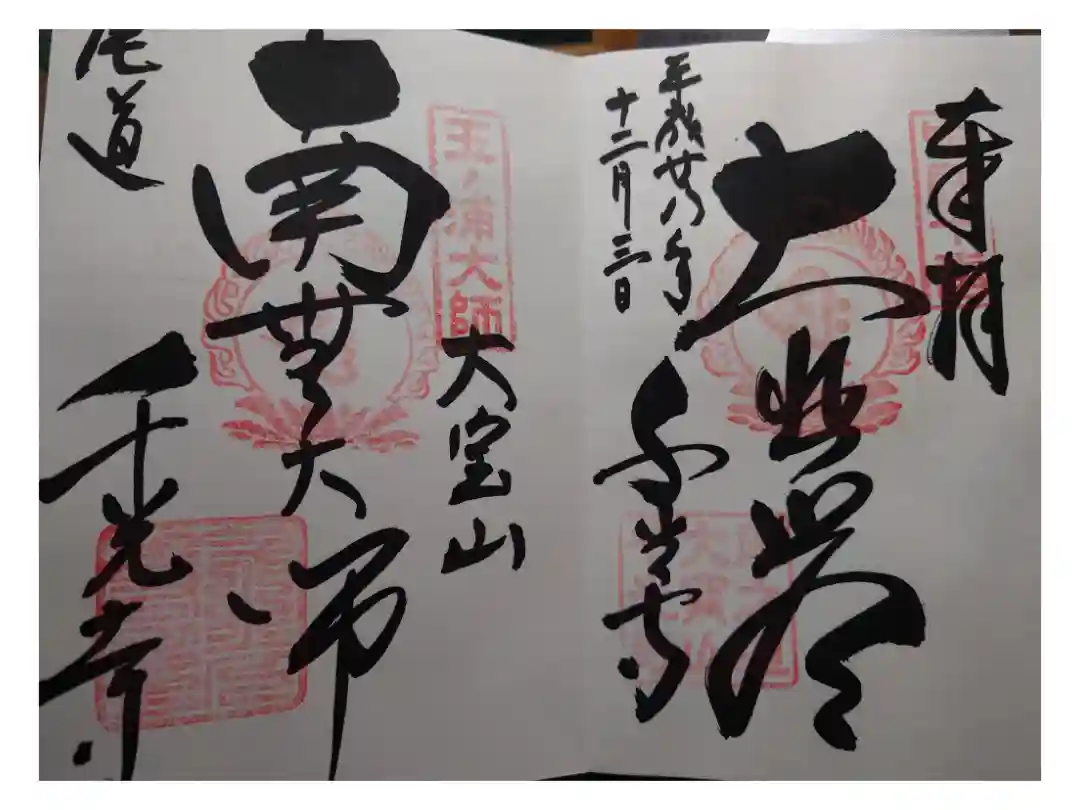 奉拝
大悲殿
平成廿年
十二月三日
千光寺
玉ノ浦大師
大宝山
南無大師
尾道
千光寺